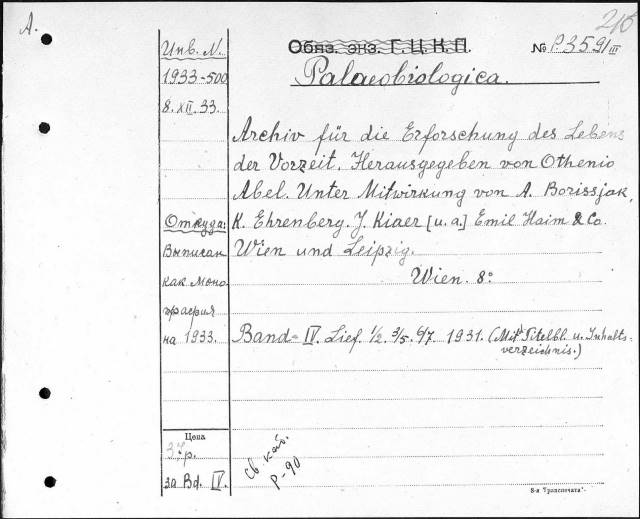 A.
216
Инв. N.
Обяз. экз. Г. Ц. К. П.
№ P3591 III
1933-500
Palaeobiologica.
8. XII. 33.
Archiv für die Erforschung des Lebens
der Vorzeit. Herausgegeben von Othenio
Abel. Unter Mitwirkung von A. Borissjak,
Откуда:
K. Ehrenberg. J. Kiaer [u. a.] Emil Haim & Co.
Выписан
Wien und Leipzig.
как моно
Wien. 8°
графия
на 1933.
Band IV. Lief. 1/2. 3/5. 6/7. 1931. (Mit Titelbl. u. Inhalts-
verzeichnis.)
Цена
37 р.
за Bd. IV.
Св. каб.
Р-90
8-я "Транспечать"